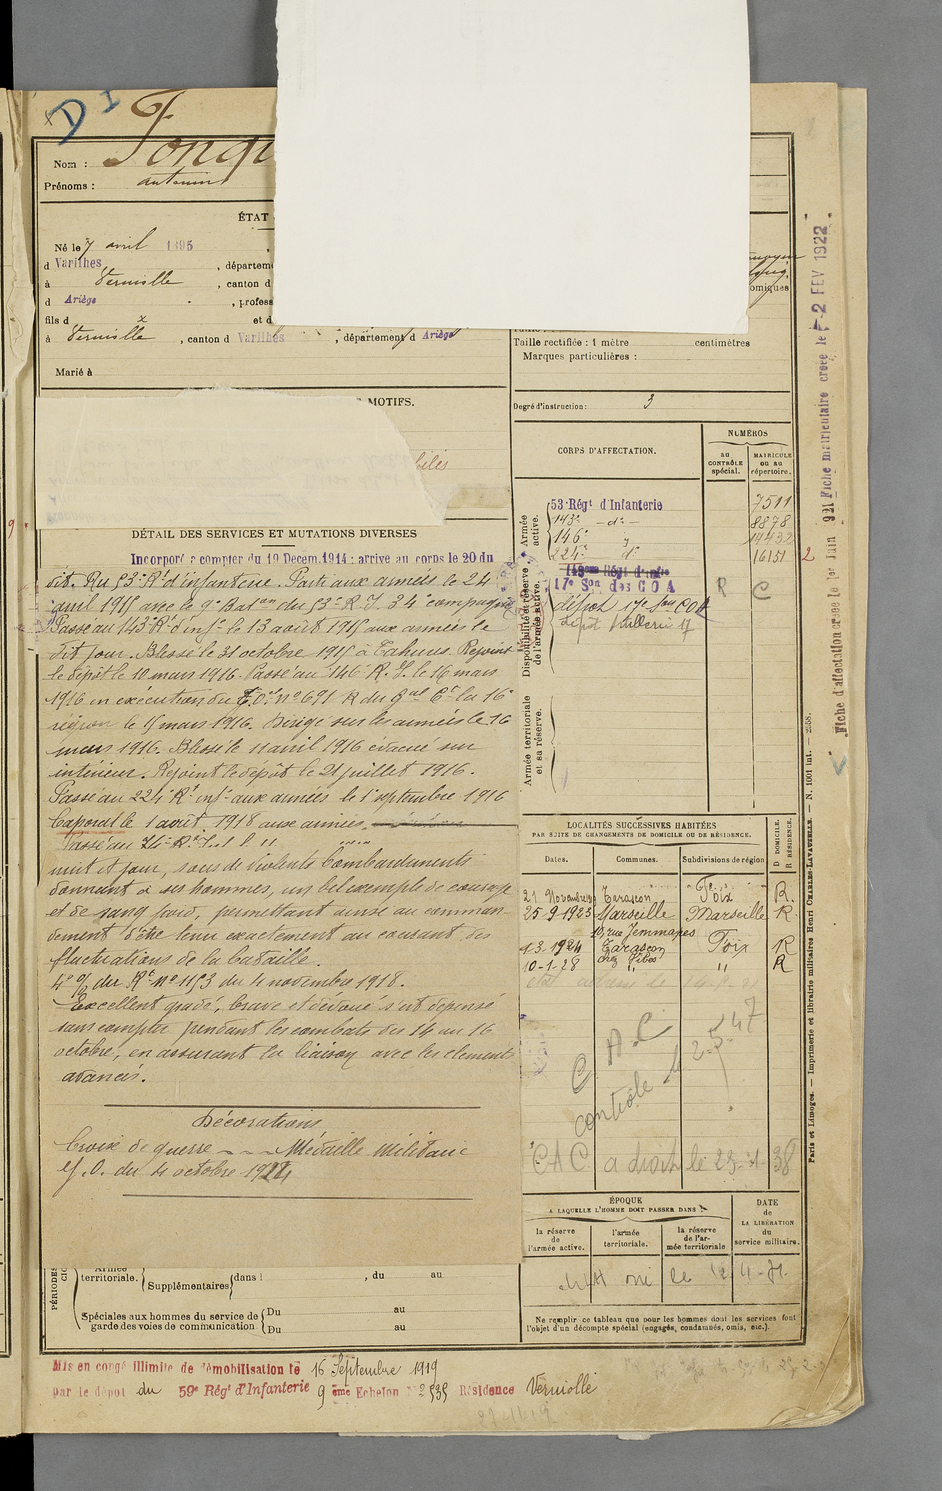 D I
Nom : Fonqu
Prénoms : antonin
ÉTAT
Né le 7 avril 1895
d Varilhes , départem
à Verniolle , canton d
d Ariège , profess
fils d x et d
à Verniolle , canton d Varilhes , département d Ariège
Marié à
MOTIFS.
biles
DÉTAIL DES SERVICES ET MUTATIONS DIVERSES
Incorporé à compter du 19 Décem. 1914 : arrivé au corps le 20 du
dit. Au 53e Rt d'infanterie. Parti aux armées le 24
avril 1915 avec le 9e Bat.on du 53e R. I. 34e compagnie
Passé au 143e Rt d'infie le 13 août 1915 aux armées le
dit jour. Blessé le 31 octobre 1915 à Tahure. Rejoint
le dépôt le 10 mars 1916. Passé au 146e R. I. le 16 mars
1916 en exécution du T. O. no 691 R du Gal Ct la 16e
région le 15 mars 1916. Dirigé sur les armées le 16
mars 1916. Blessé le 11 avril 1916 évacué sur
intérieur. Rejoint le dépôt le 21 juillet 1916.
Passé au 224e Rt infie aux armées le 1er septembre 1916
Caporal le 1 août 1918 aux armées.
Passé au
nuit et jour, sous de violents bombardements
donnant à ses hommes, un bel exemple de courage
et de sang froid, permettant ainsi au comman-
dement d'être tenu exactement au courant des
fluctuations de la bataille.
4o O/ du Rt no 1153 du 4 novembre 1918.
Excellent gradé, brave et dévoué s'est dépensé
sans compter pendant les combats du 14 au 16
octobre, en assurant la liaison avec les éléments
avancés.
Décorations
Croix de guerre --- Médaille Militaire
J. O. du 4 octobre 1924
territoriale. Supplémentaires dans l , du au
Spéciales aux hommes du service de garde des voies de communication Du au
Du au
PÉRIODES
Mis en congé illimité de démobilisation le 16 Septembre 1919
par le dépôt du 59e Régt d'Infanterie 9 ème Echelon No 2535 Résidence Verniolle
omiques
Taille rectifiée : 1 mètre centimètres
Marques particulières :
Degré d'instruction : 3
CORPS D'AFFECTATION.
NUMÉROS
AU CONTRÔLE spécial.
MATRICULE OU AU répertoire.
Armée active.
53e Régt d'Infanterie 7511
143e -do- 8878
146e 14432
224e do 16151 2
Disponibilité et réserve de l'armée active.
17e Son des C O A R C
dépôt 17e Son COA
Armée territoriale et sa réserve.
LOCALITÉS SUCCESSIVES HABITÉES
PAR SUITE DE CHANGEMENTS DE DOMICILE OU DE RÉSIDENCE.
Dates. Communes. Subdivisions de région D DOMICILE. R RÉSIDENCE.
21 Novembre Tarascon Foix R.
25-9-1923 Marseille Marseille R.
10, rue Jemmapes
1.3.1924 Tarascon Foix R
10-1-28 " " R
C A C
contrôle le 2-5-47
CAC a droit le 23-1-38
ÉPOQUE
A LAQUELLE L'HOMME DOIT PASSER DANS
la réserve de l'armée active.
l'armée territoriale.
la réserve de l'armée territoriale
DATE de LA LIBÉRATION du service militaire.
Ne remplir ce tableau que pour les hommes dont les services font
l'objet d'un décompte spécial (engagés, condamnés, omis, etc.).
Fiche d'affectation créée le 1er Juin 1921 Fiche matriculaire créée le -2 FEV 1922
Paris et Limoges. — Imprimerie et librairie militaires Henri CHARLES-LAVAUZELLE. — N. 1001 int. — 2558.